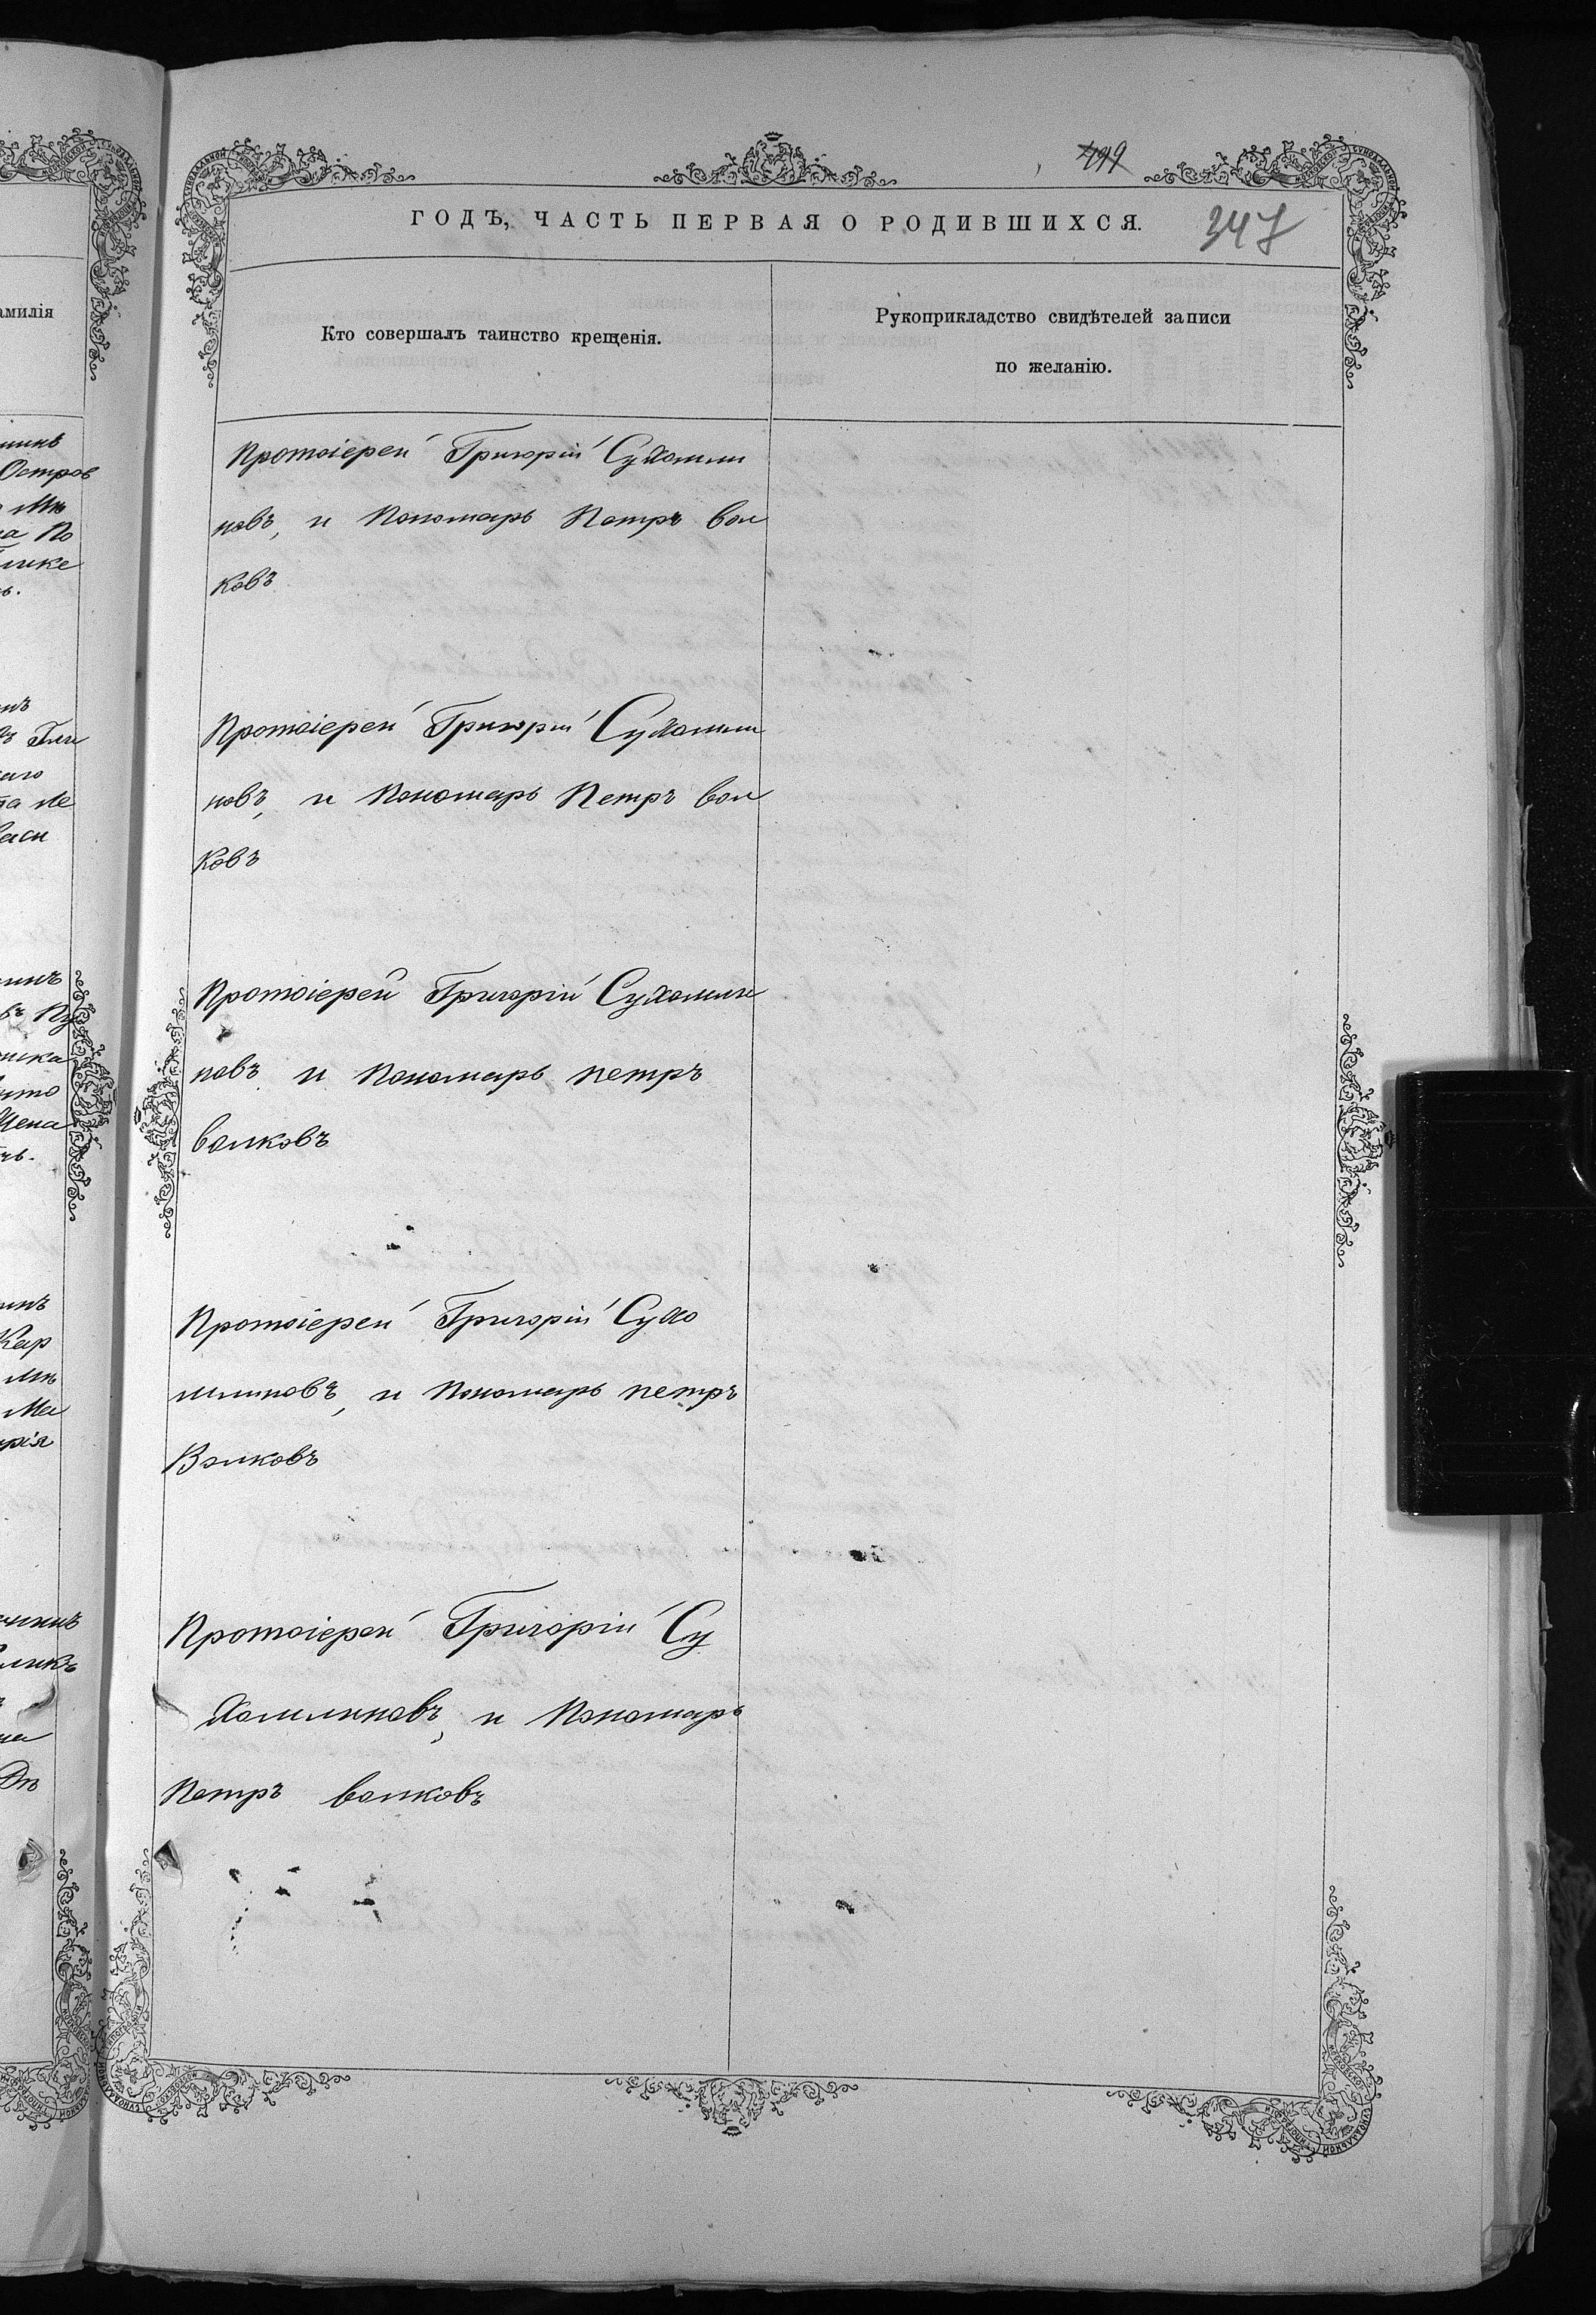 499
ГОДЪ, ЧАСТЬ ПЕРВАЯ О РОДИВШИХСЯ.
347
Кто совершалъ таинство крещенія.
Рукоприкладство свидѣтелей записи
по желанію.
Протоіерей Григорій Сухомли
новъ, и Пономарь Петръ Вол
ковъ
Протоіерей Григорій Сухомли
новъ, и Пономарь Петръ Вол
ковъ
Протоіерей Григорій Сухомли
новъ и Пономарь Петръ
Волковъ
Протоіерей Григорій Сухо
млиновъ, и Пономарь Петръ
Волковъ
Протоіерей Григорій Су
хомлиновъ, и Пономарь
Петръ Волковъ
амилія
Остров